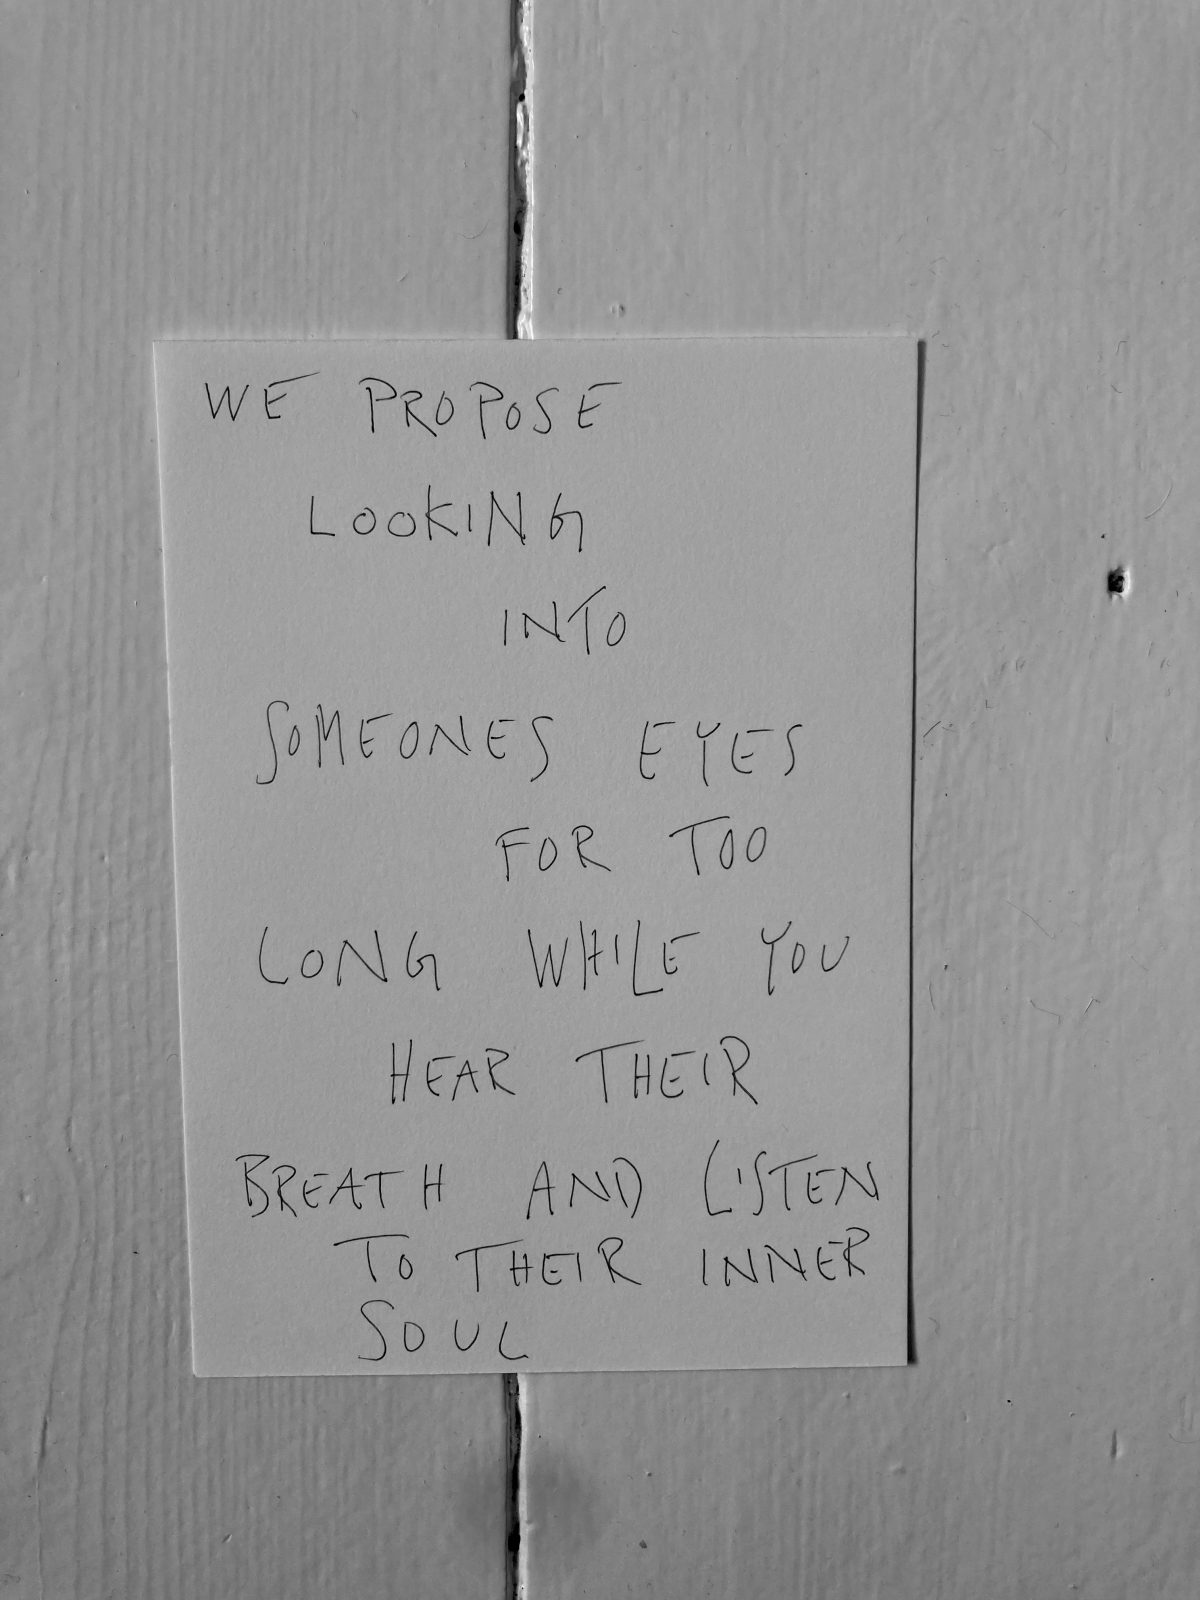 WE PROPOSE
LOOKING
INTO
SOMEONES EYES
FOR TOO
LONG WHILE YOU
HEAR THEIR
BREATH AND LISTEN
TO THEIR INNER
SOUL